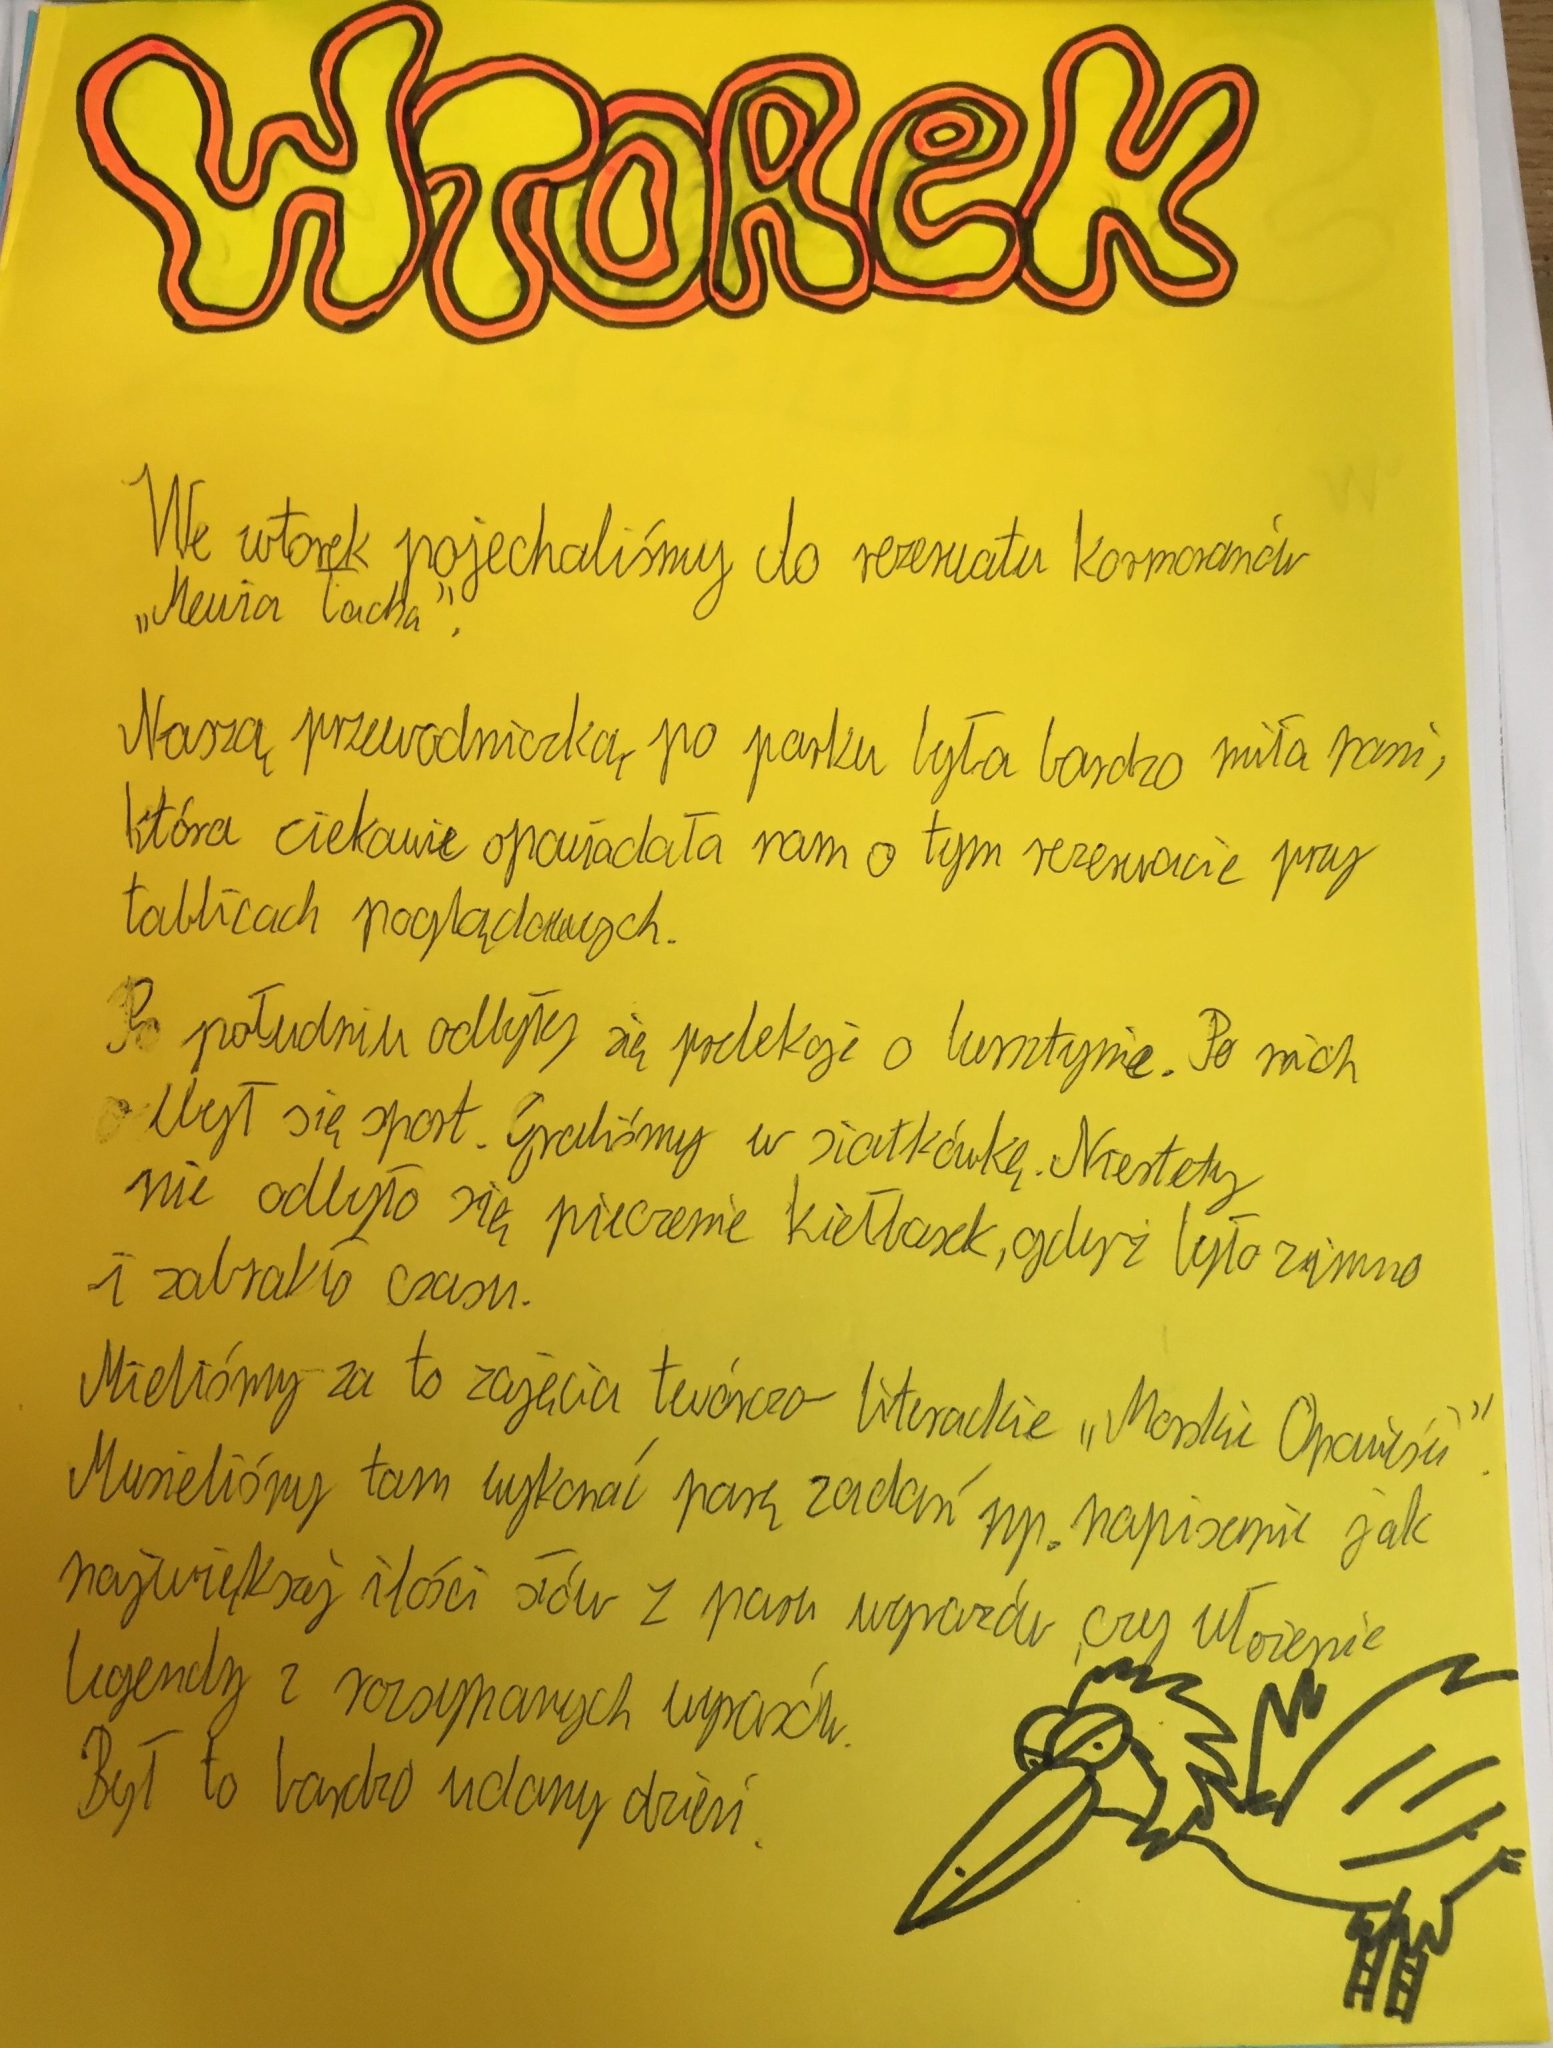 WTOREK
We wtorek pojechaliśmy do rezerwatu kormoranów
„Mewia Łacha”.
Naszą przewodniczką po parku była bardzo miła pani,
która ciekawie opowiadała nam o tym rezerwacie przy
tablicach poglądowych.
Po południu odbyły się prelekcje o bursztynie. Po nich
odbył się sport. Graliśmy w siatkówkę. Niestety
nie odbyło się pieczenie kiełbasek, gdyż było zimno
i zabrakło czasu.
Mieliśmy za to zajęcia twórczo literackie „Morskie Opowieści”.
Musieliśmy tam wykonać parę zadań np. napisanie jak
największej ilości słów z paru wyrazów, czy ułożenie
legendy z rozsypanych wyrazów.
Był to bardzo udany dzień.